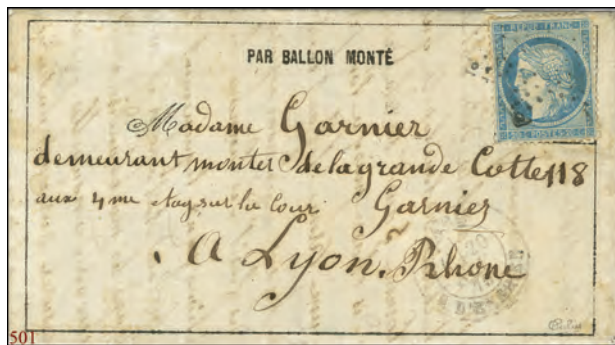 PAR BALLON MONTÉ
REPUB. FRANC.
POSTES
Madame Garnier
demeurant montes de la grande Cotte 118
aux 4 me etag sur la cour Garnier
A Lyon. Rhone
20
501